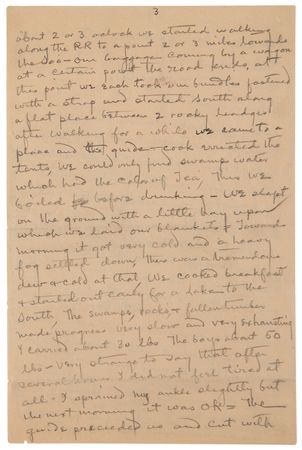 3
about 2 or 3 oclock we started walking
along the RR to a point 2 or 3 miles towards
the Soo - our baggage coming by a wagon
at a certain point the road ends, at
this point we each took our bundles fastened
with a strap and started South along
a flat place between 2 rocky ledges
after walking for a while we came to a
place and the guide - cook erected the
tents, we could only find swamp water
which had the color of Tea, This we
boiled before drinking - We slept
on the ground with a little hay upon
which we laid our blankets - Toward
morning it got very cold and a heavy
fog settled down, There was a tremendous
dew & cold at that. We cooked breakfast
& started out early for a lake to the
South. The swamps, rocks & fallen timber
made progress very slow and very exhausting
I carried about 30 lbs The boys about 50
lbs - very strange to say that after
several hours I did not feel tired at
all - I sprained my ankle slightly but
the next morning it was OK - The
guide preceeded us and cut with